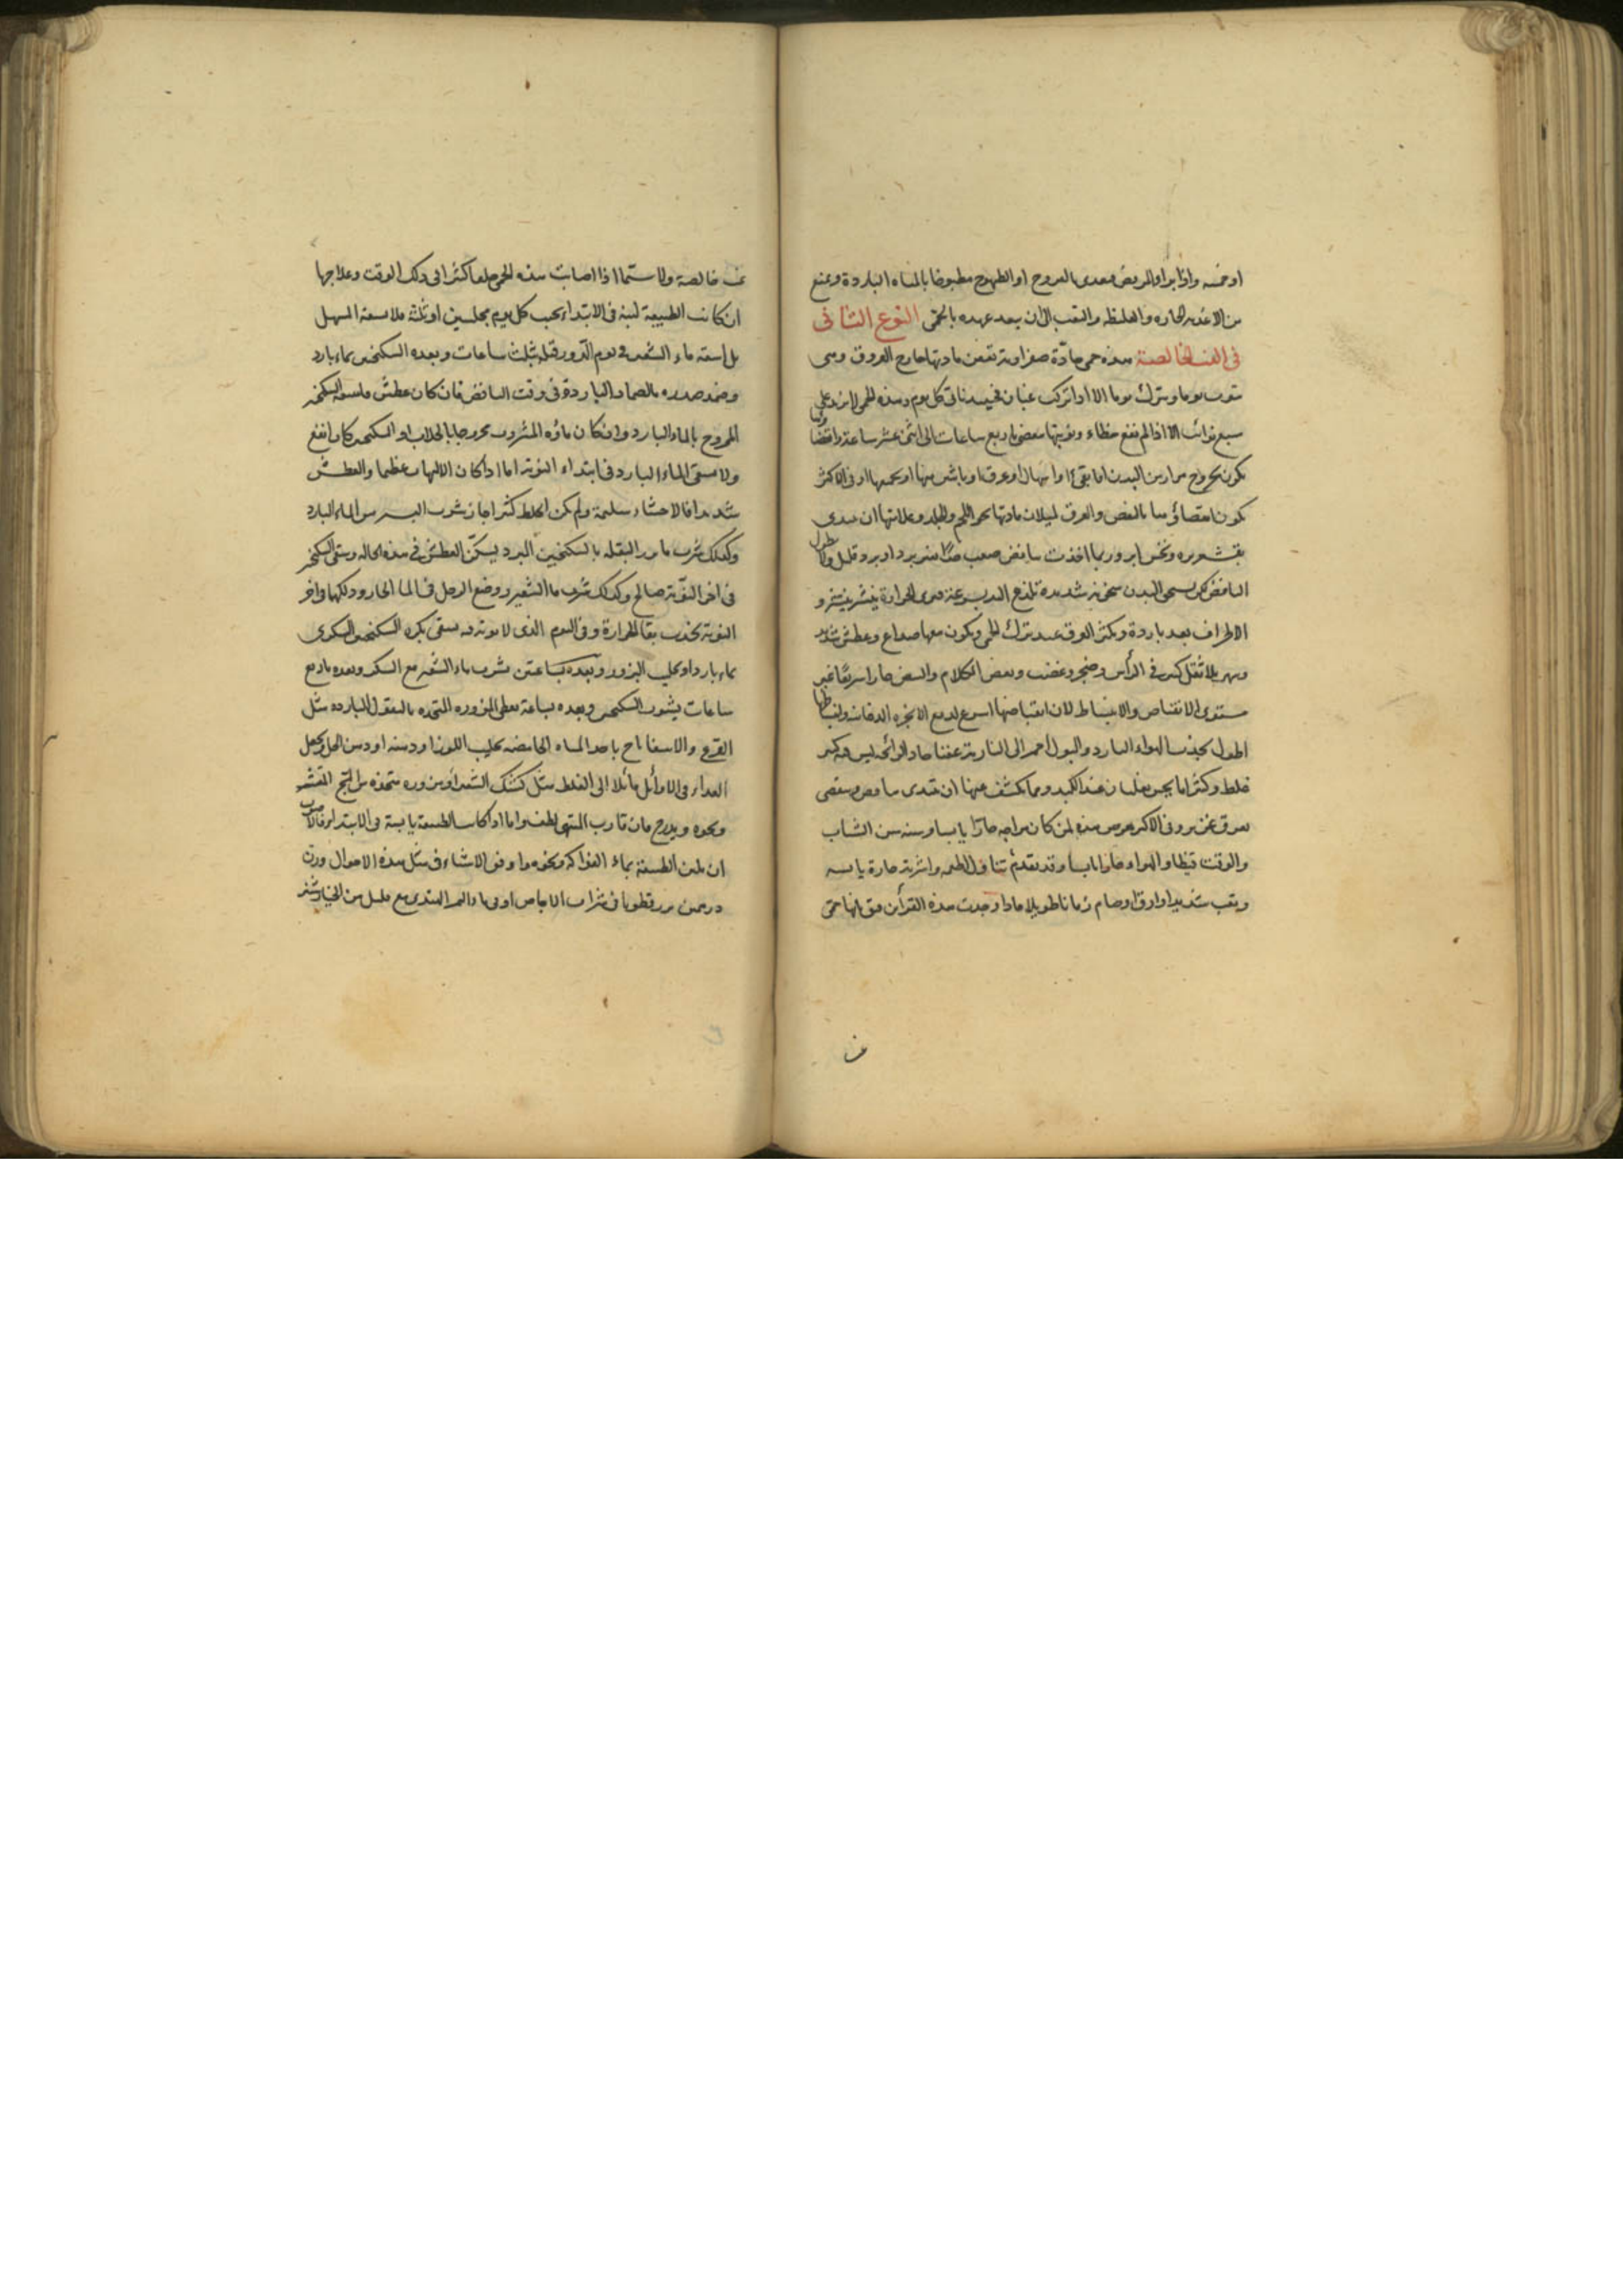 او خمسه واذا برا والمريض فيغدى بالفروج او الطيهوج مطبوخا بالمياه الباردة ويمنع
من الاغذيه الحاره والغليظه والتعب الى ان يبعد عهده بالحمى النوع الثانى
فى الغب الخالصة هذه حمى حادّة صفراوية تعفن مادتها خارج العروق وهى
تنوب يوما وتترك يوما الا اذا تركب غبان فحينئذ تاتى كل يوم وهذه الحمى لا تزيد على
سبع نوائب الا اذا لم يقع خطاء ونوبتها تنقضى باربع ساعات الى اثنى عشر ساعة وانقضاؤها
يكون بخروج مرار من البدن اما بقئ او اسهال او عرق او باثنين منها او بجميعها او فى الاكثر
يكون انقضاؤها بالنفض والعرق لسيلان مادتها نحو اللحم والجلد وعلاماتها ان تبتدى
بقشعريره ونخس ابر وربما اخذت بنافض صعب جدًّا بغير برد او برد قليل ولا يطول
النافض بل يسخن البدن سخونة شديدة تلذع اليد بسرعة فترى الحرارة ينتشر و
الاطراف بعد باردة ويكثر العرق عند ترك الحمى ويكون معها صداع وعطش شديد
وسهر بلا ثقل كثير فى الرأس وضجر وغضب وبغض الكلام والنبض حارا سريعًا غير
مستوى الانقباض والانبساط لان انقباضها اسرع لدفع الابخره الدخانيه وانبساطها
اطول لجذب الهواء البارد والبول احمر الى النارية عفنا حاد الرائحه ليس فيه كبير
غلظ وكثيرا ما يحس بغليان عند الكبد ومما يكشف عنها ان تبتدى بنافض وتنقضى
بعرق غزير وفى الاكثر تعرض هذه لمن كان مزاجه حارًّا يابسا وسنه سن الشباب
والوقت قيظا والهواء حارا يابسا وقد تقدم تناول اطعمه واشربة حارة يابسه
وتعب شديد او ارق او صام زمانا طويلا فاذا وجدت هذه القرآئن فثق انها حمى
غب
غب خالصة ولا سيّما اذا اصابت هذه الحمى خلقا كثيرا فى ذلك الوقت وعلاجها
ان كانت الطبيعة لينة فى الابتداء يجب كل يوم مجلسين او ثلثة فلا تسقه المسهل
بل اسقه ماء الشعير فى يوم الدّور قبله بثلث ساعات وبعده السكنجبين بماء بارد
وضمد صدره بالضماد الباردة فى وقت النافض فان كان عطش فاسقه السكنجبين
الممزوج بالماء البارد وان كان ماؤه المشروب ممزوجا بالجلاب او السكنجبين كان انفع
ولا يسقى الماء البارد فى ابتداء النوبة اما اذا كان الالتهاب عظيما والعطش
شديدا فالاحشاء سليمة ولم يكن الخلط كثيرا جاز شرب اليسير من الماء البارد
وكذلك شرب ماء بزر البقله بالسكنجبين البرد يسكّن العطش فى هذه الحاله ويسقى السكنجبين
فى اخر النوبة صالح وكذلك شرب ماء الشعير ووضع الرجل فى الماء الحار ودلكها واخر
النوبة يجذب بقايا الحرارة وفى اليوم الذى لا نوبة فيه يسقى بكرة السكنجبين السكرى
بماء بارد او بحليب البزور وبعده بساعتين يشرب ماء الشعير مع السكر وبعده باربع
ساعات يشرب السكنجبين وبعده بساعة يعطى المزوره المتخذه بالبقول البارده مثل
القرع والاسفاناخ باحد المياه الحامضه بحليب اللوز او دهنه او دهن الخل ويجعل
الغذاء فى الاوائل مائلا الى الغلظ مثل كشك الشعير او مزوره متخذه من الماش المقشر
ونحوه ويدرج فان قارب المنتهى لطف واما اذا كانت الطبيعة يابسة فى الابتداء فالاصوب
ان تلين الطبيعة بماء الفواكه ونحوه واوفق الاشياء فى مثل هذه الاحوال وزن
درهمين بزر قطونا فى شراب الاجاص او فى ماء التمر الهندى مع قليل من الخيارشنبر